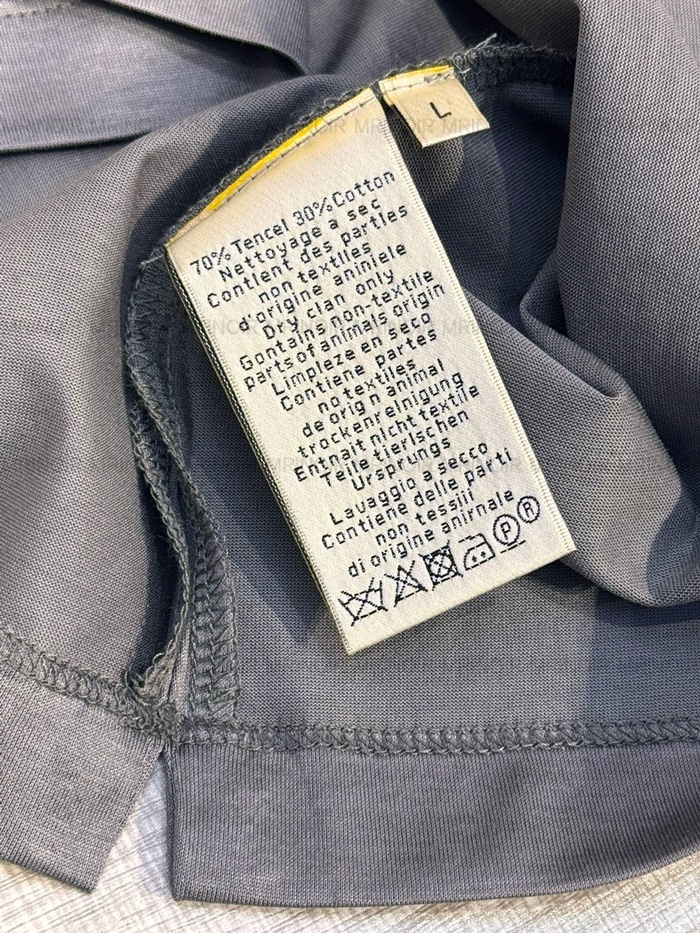 L
70% Tencel 30% Cotton
Nettoyage a sec
Contient des partles
non textiles
d'origine aniniele
Dry clan only
Gontains non-textile
parts of animals origin
Limpleze en seco
Contiene partes
no textiles
de orign animal
trockenreinigung
Entnait nicht textile
Teile tierlschen
Ursprungs
Lavaggio a secco
Contiene delle parti
non tessiii
di origine anirnale
P
R
MRNOIR MRNOIR MRNOIR MRNOIR
MRNOIR MRNOIR MRNOIR MRNOIR